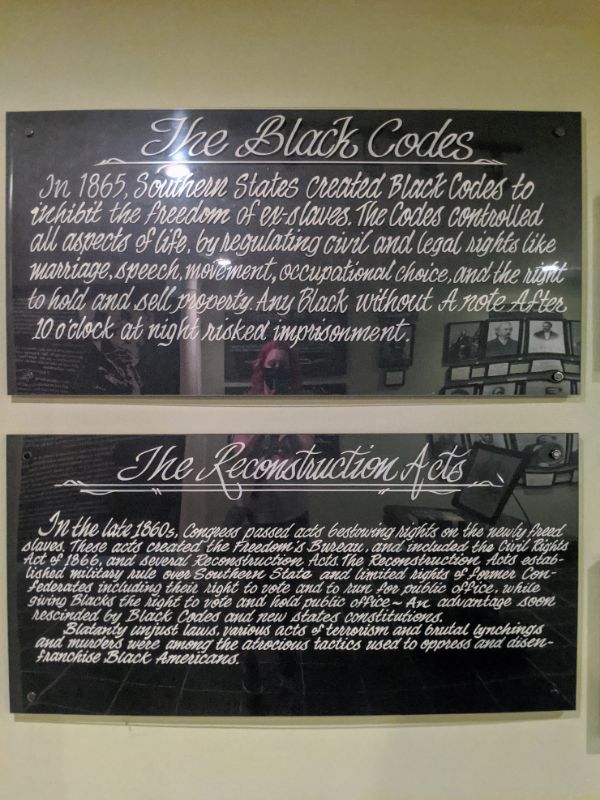 The Black Codes
In 1865, Southern States created Black Codes to
inhibit the freedom of ex-slaves. The Codes controlled
all aspects of life, by regulating civil and legal rights like
marriage, speech, movement, occupational choice, and the right
to hold and sell property. Any Black without A note After
10 o'clock at night risked imprisonment.
The Reconstruction Acts
In the late 1860s, Congress passed acts bestowing rights on the newly freed
slaves. These acts created the Freedom's Bureau, and included the Civil Rights
Act of 1866, and several Reconstruction Acts. The Reconstruction Acts estab-
lished military rule over Southern State and limited rights of former Con-
federates including their right to vote and to run for public office, while
giving Blacks the right to vote and hold public office - An advantage soon
rescinded by Black Codes and new states constitutions.
Blatanty unjust laws, various acts of terrorism and brutal lynchings
and murders were among the atrocious tactics used to oppress and disen-
franchise Black Americans.